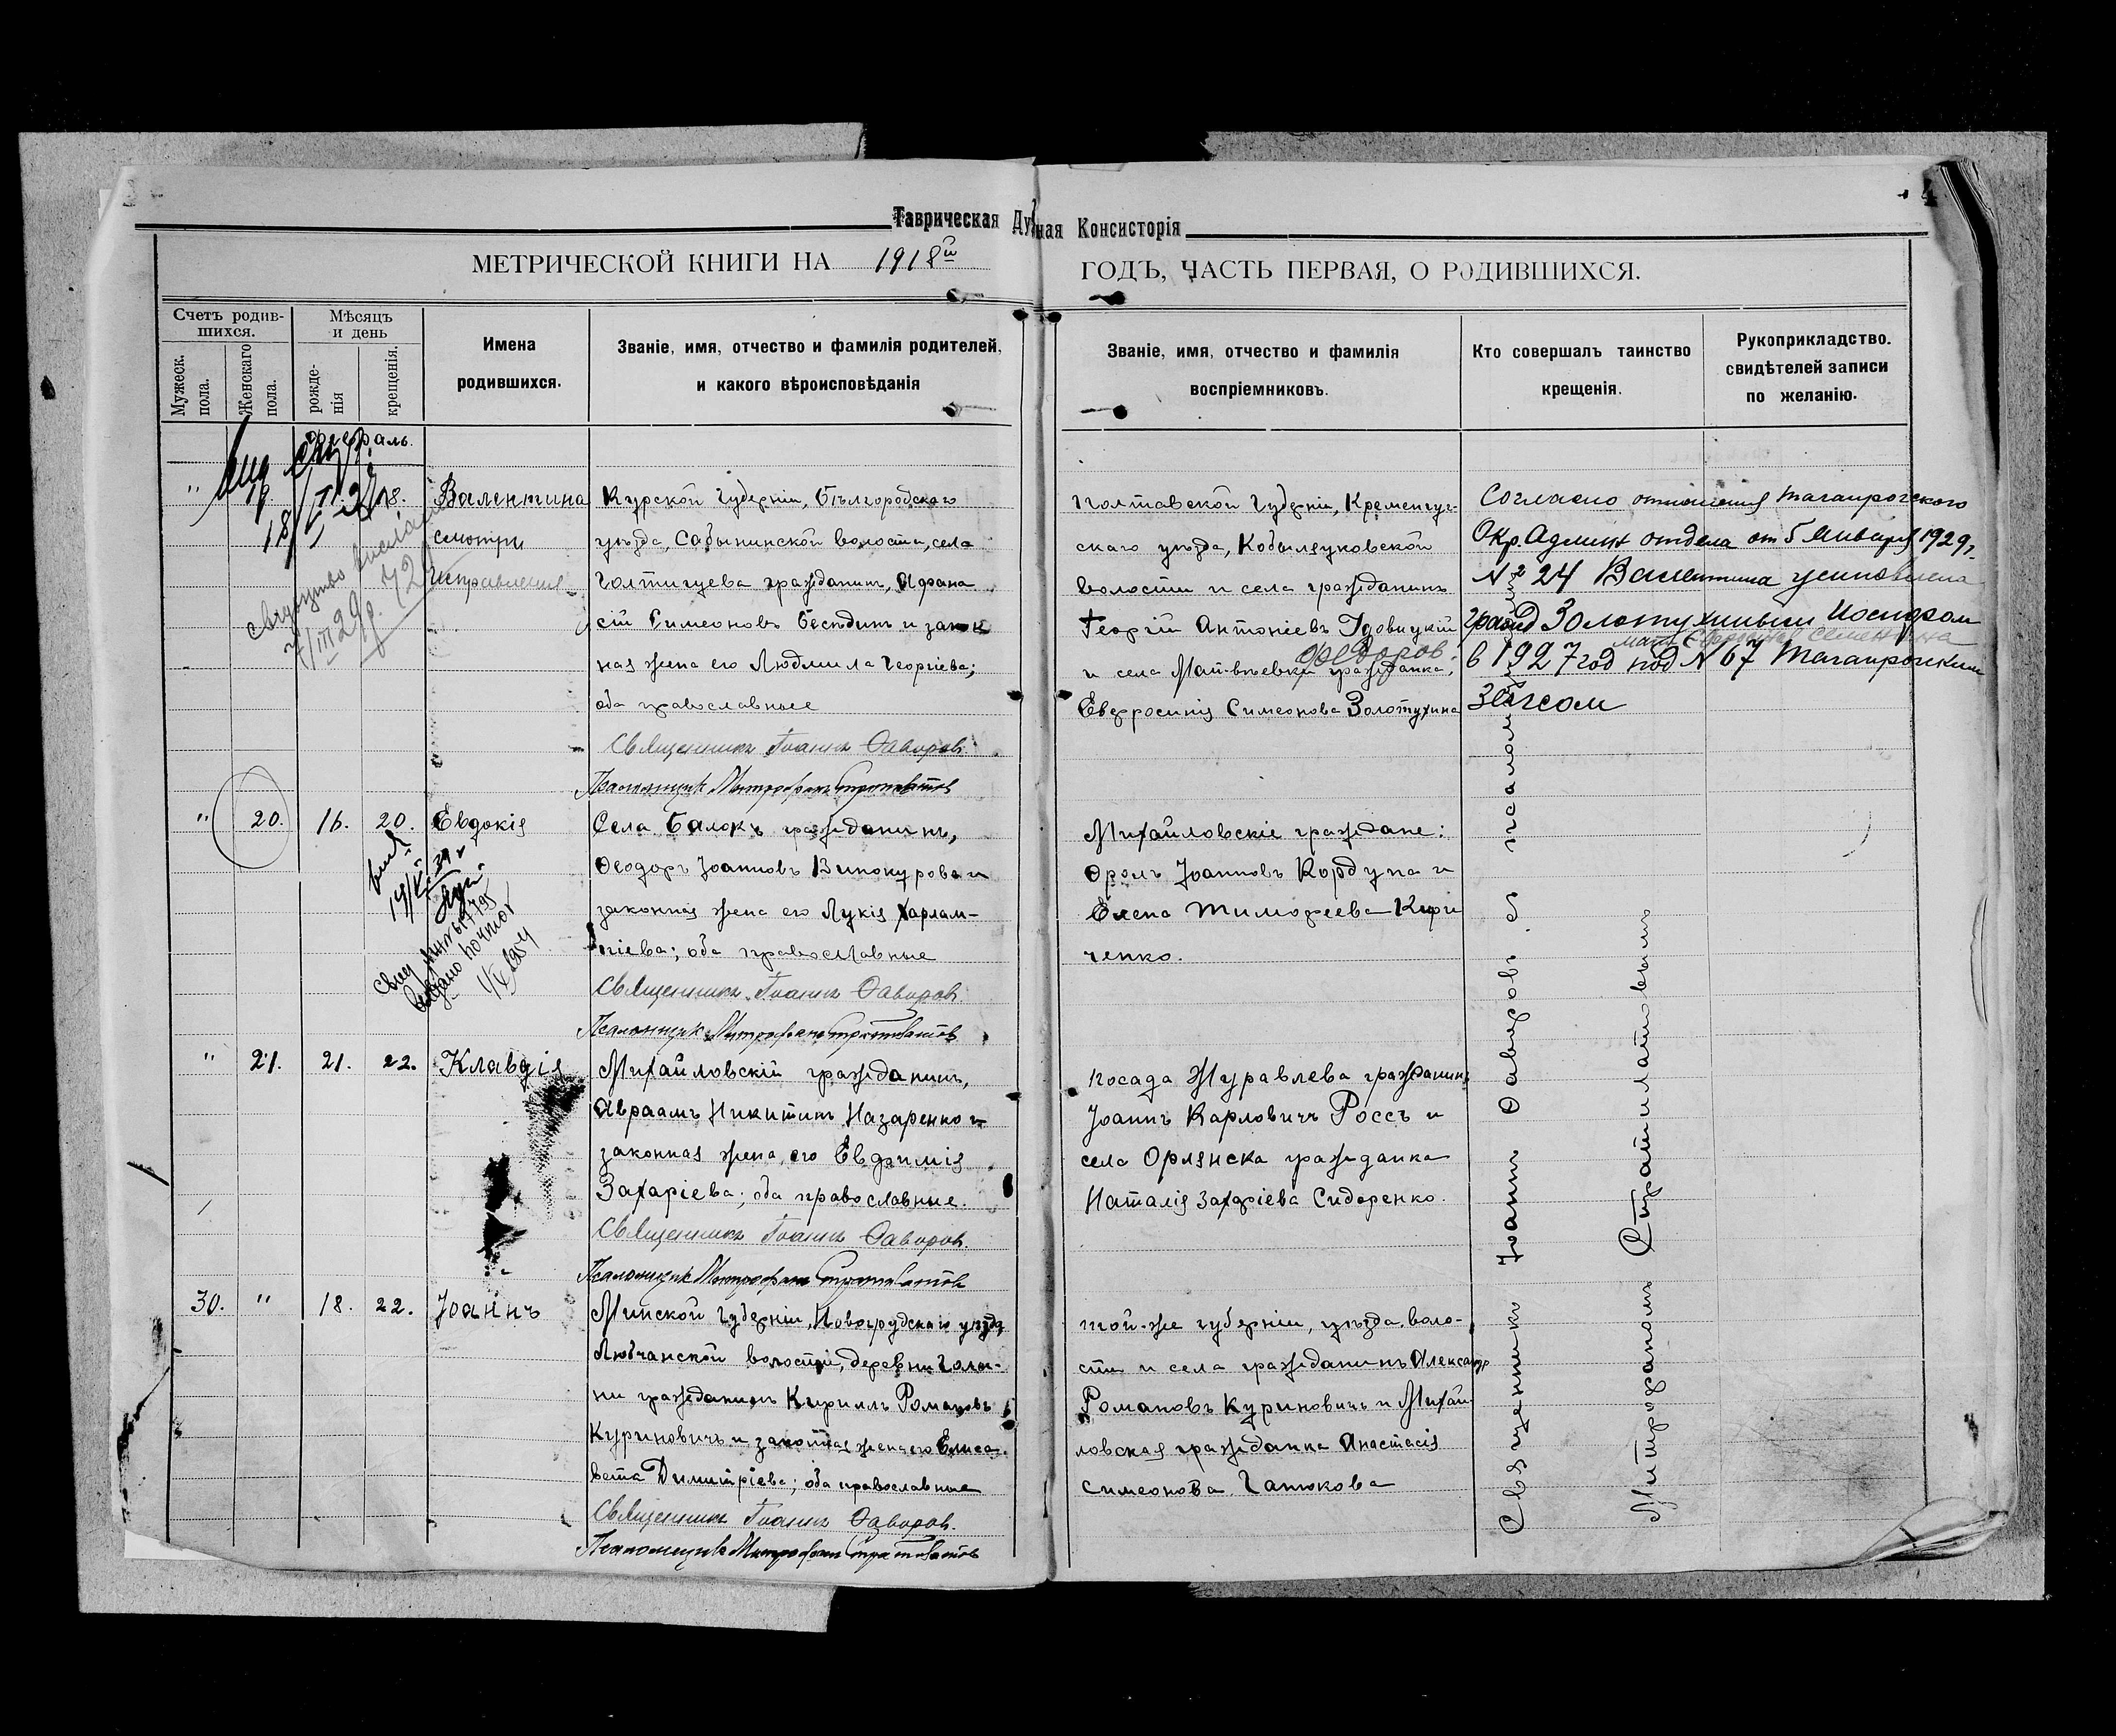 Таврическая Духовная Консисторія
МЕТРИЧЕСКОЙ КНИГИ НА 1918й ГОДЪ, ЧАСТЬ ПЕРВАЯ, О РОДИВШИХСЯ.
Счетъ родившихся.
Мужеск. пола.
Женскаго пола.
Мѣсяцъ и день
рожденія
крещенія.
Имена родившихся.
Званіе, имя, отчество и фамилія родителей, и какого вѣроисповѣданія
Званіе, имя, отчество и фамилія воспріемниковъ.
Кто совершалъ таинство крещенія.
Рукоприкладство. свидѣтелей записи по желанію.
Февраль.
" 19. 18.
Валентина
смотри
исправленія
Курской губерніи, Бѣлгородскаго
уѣзда, Сабынинской волости, села
гражданинъ, Афана
сій Симеоновъ Бесѣдинъ и закон
ная жена его Людмила Георгіева;
оба православные
Священникъ Іоаннъ Фаворовъ.
Псаломщикъ Митрофанъ Стратилатовъ
Полтавской губерніи, Кременчуг-
скаго уѣзда, Кобелякской
волости и села гражданинъ
Георгій Антоніевъ
и села Матвѣевки гражданка,
Евфросинія Симеонова Золотухина
Согласно отношения Таганрогского
Окр. Админ отдела от 5 Января 1929 г.
№ 24 Валентина усыновлена
гражд Золотухиным Иосифом
Федоров.
мать Ефросиния Семеновна
в 1927 год под № 67 Таганрогским
Загсом
" 20. 16. 20. Евдокія
Села Балокъ гражданинъ,
Ѳеодоръ Іоанновъ Винокуровъ и
законная жена его Лукія Харлам-
піева; оба православные
Священникъ Іоаннъ Фаворовъ
Псаломщикъ Митрофанъ Стратилатовъ
Михайловскіе граждане:
Фролъ Іоанновъ Кордупа и
Елена Тимофеева Кири
ченко.
" 21. 21. 22. Клавдія
Михайловскій гражданинъ,
Авраамъ Никитинъ Назаренко и
законная жена его Евфимія
Захаріева; оба православные.
Священникъ Іоаннъ Фаворовъ.
Псаломщикъ Митрофанъ Стратилатовъ
посада Журавлева гражданинъ
Іоаннъ Карловичъ Россъ и
села Орлянска гражданка
Наталія Захаріева Сидоренко.
30. " 18. 22. Іоаннъ
Минской губерніи, Новогрудскаго уѣзда
Любчанской волости, деревни
ни гражданинъ Кириллъ Романовъ
Куриновичъ и законная жена его Елиса-
вета Димитріева; оба православные
Священникъ Іоаннъ Фаворовъ.
Псаломщикъ Митрофанъ Стратилатовъ
той-же губерніи, уѣзда, воло-
сти и села гражданинъ Александр
Романовъ Куриновичъ и Михай
ловская гражданка Анастасія
Симеонова Ганюкова
Священникъ Іоаннъ Фаворовъ съ псаломщикомъ
Митрофаномъ Стратилатовымъ